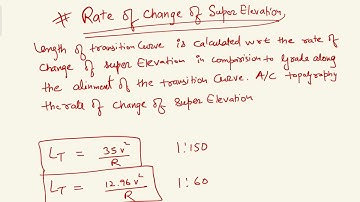 # Rate of Change of Super Elevation
Length of transition Curve is calculated w.r.t the rate of
Change of super Elevation in comparision to grade along
the alinment of the transition Curve. A/C topography
the rate of change of super Elevation
L_T = 35v²/R 1:150
L_T = 12.96v²/R 1:60